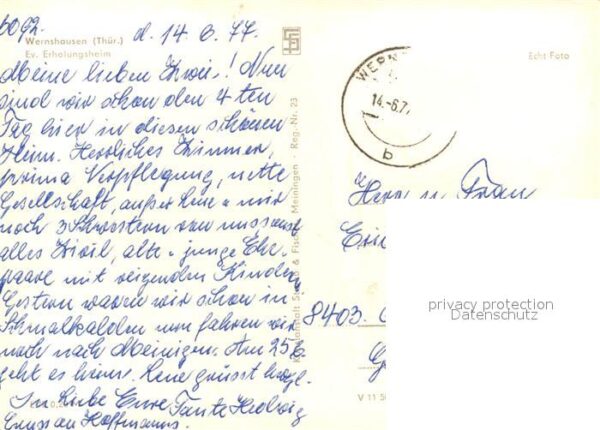 6092
Wernshausen (Thür.)
Ev. Erholungsheim
d. 14.6.77.
Meine lieben Zwei! Nun
sind wir schon den 4ten
Tag hier in diesem schönen
Heim. Herrliches Zimmer,
prima Verpflegung, nette
Gesellschaft, außer Lene u. mir
noch 3 Schwestern von uns sonst
alles Zivil, alte u. junge Ehe-
paare mit reizenden Kindern
Gestern waren wir schon in
Schmalkalden nun fahren wir
noch nach Meinigen. Am 25.6.
geht es heim. Lene grüsst herzl.
In Liebe Eure Tante Hedwig
Gruss an Hoffmanns.
Reg.-Nr. 23
Meiningen
Echt Foto
WERN
14.-6.7
b
Herr u. Frau
8403
V 11 50
privacy protection
Datenschutz